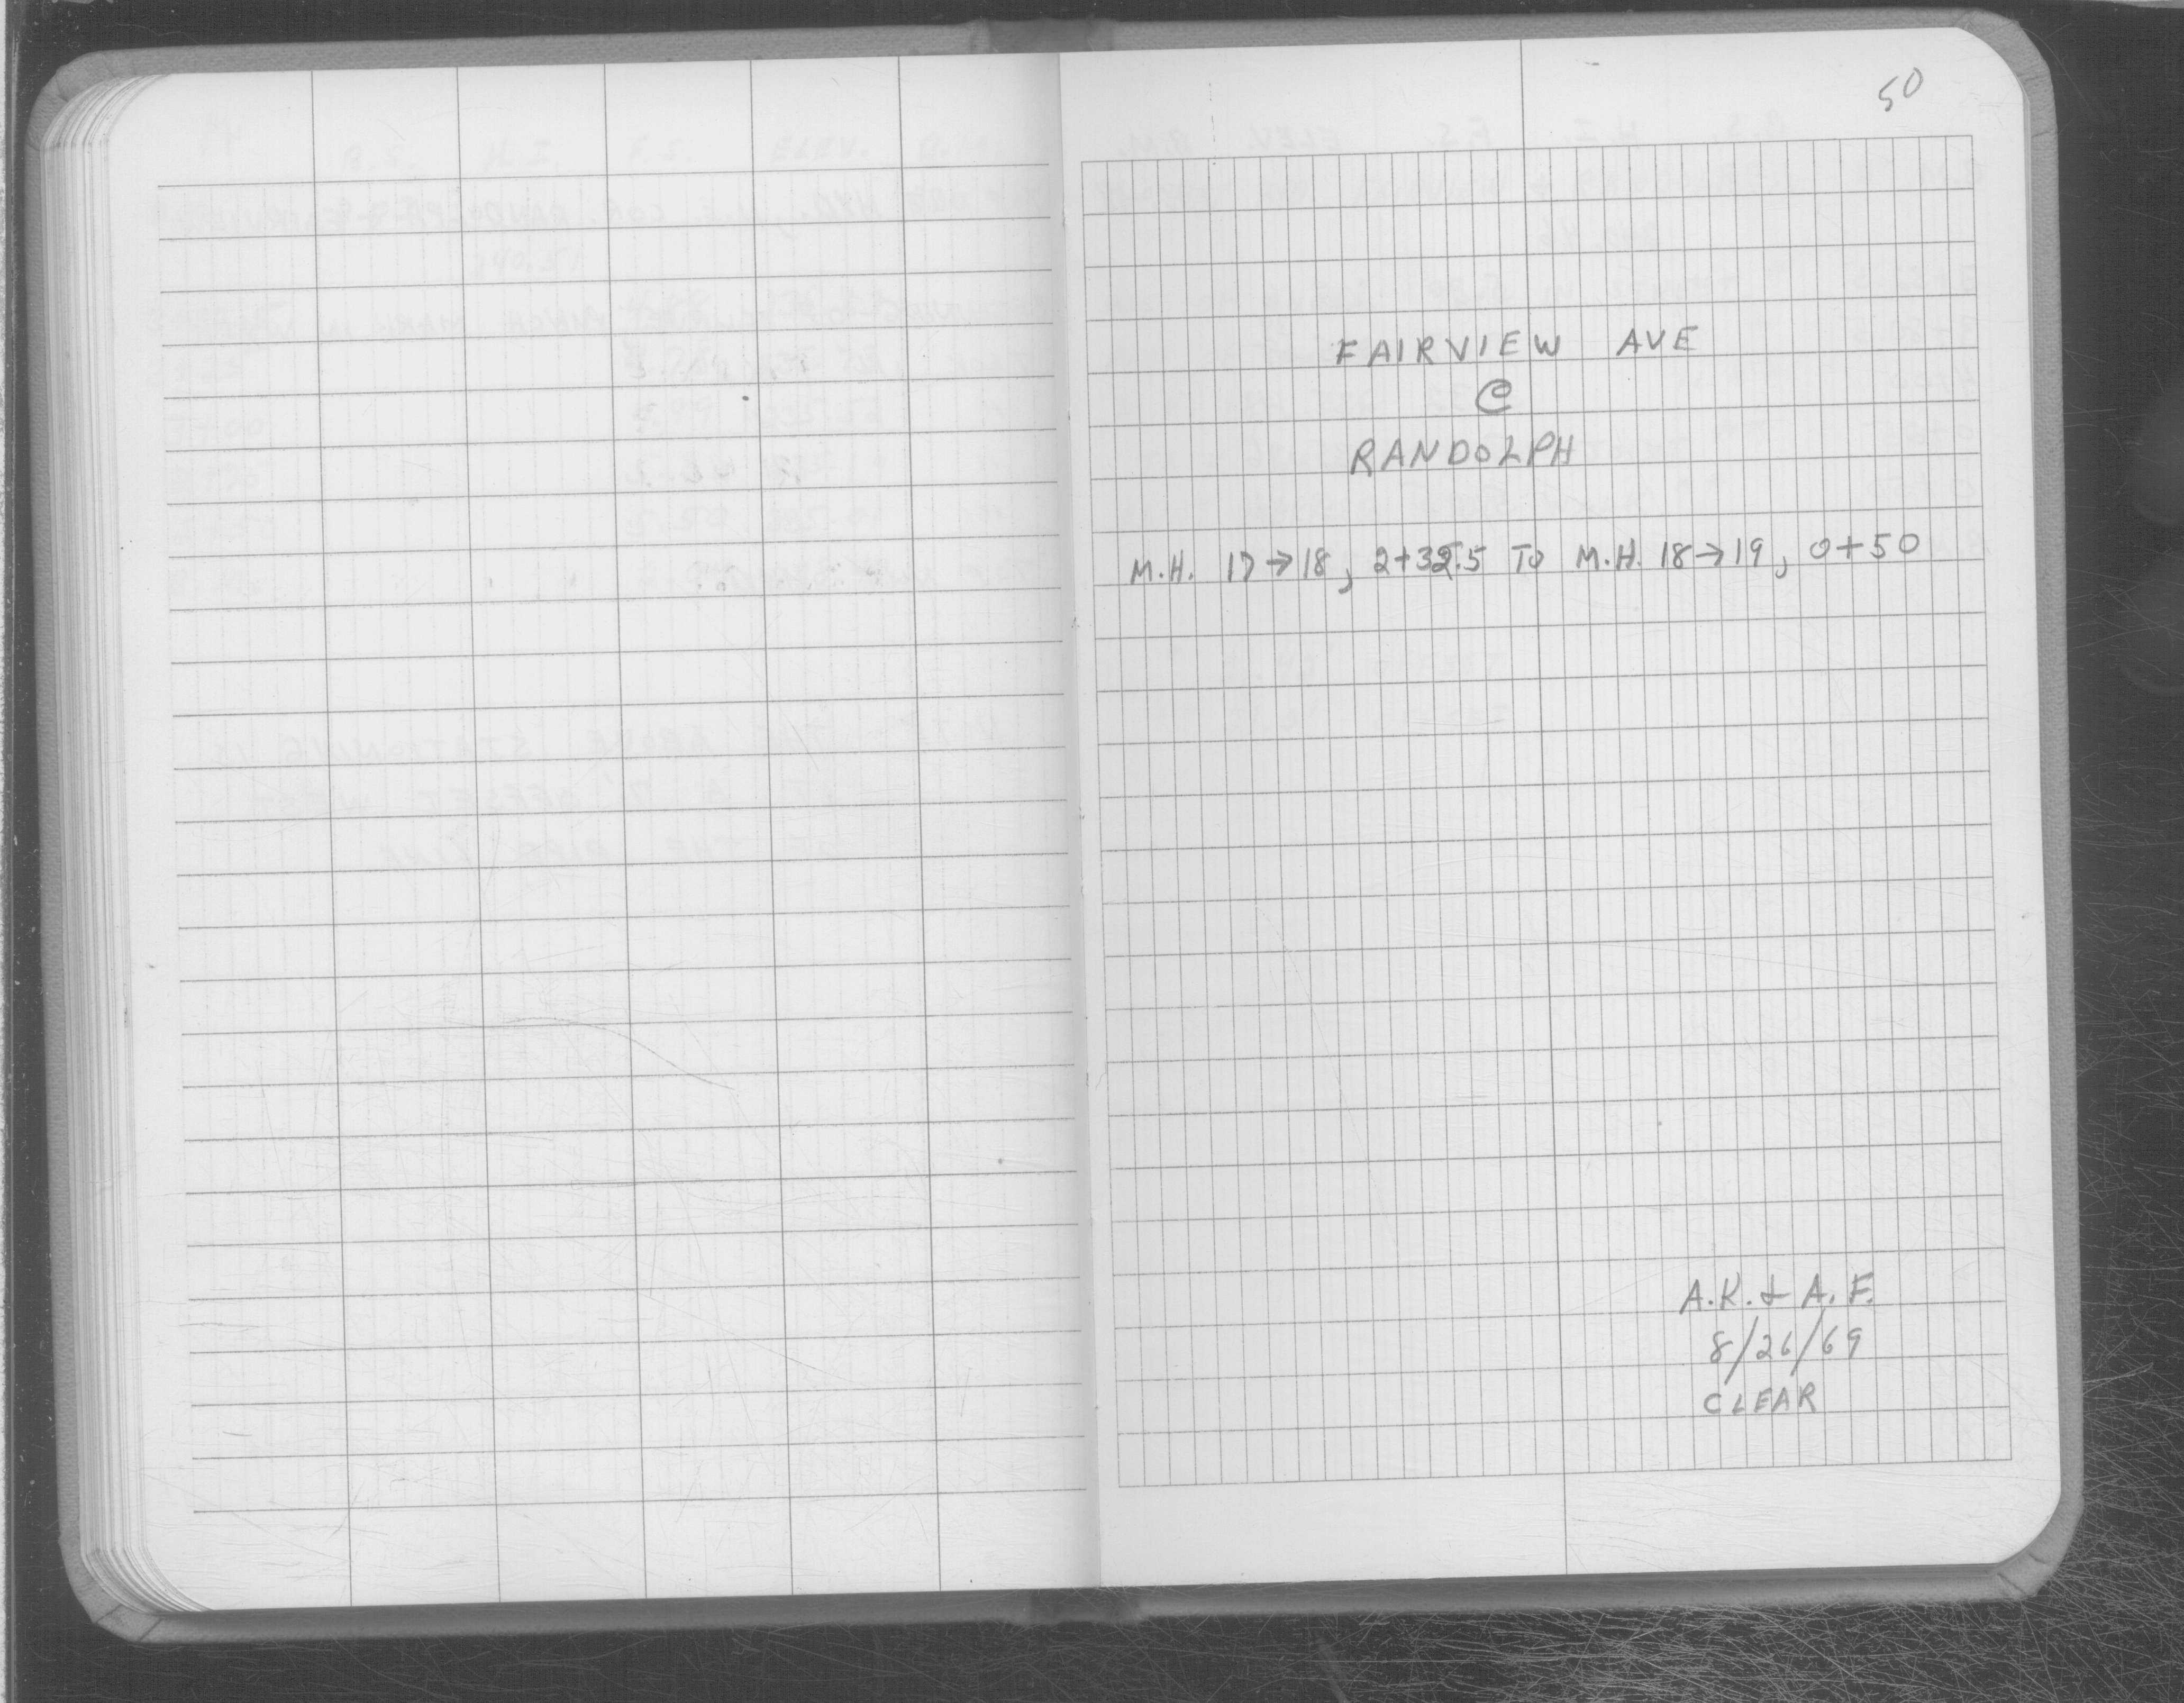 50
FAIRVIEW AVE
@
RANDOLPH
M.H. 17→18, 2+32.5 TO M.H. 18→19, 0+50
A.K. & A.F.
8/26/69
CLEAR